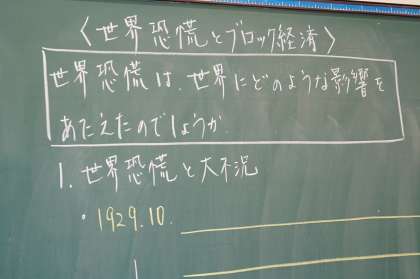 〈世界恐慌とブロック経済〉
世界恐慌は、世界にどのような影響を
あたえたのでしょうか
1. 世界恐慌と大不況
・1929.10.